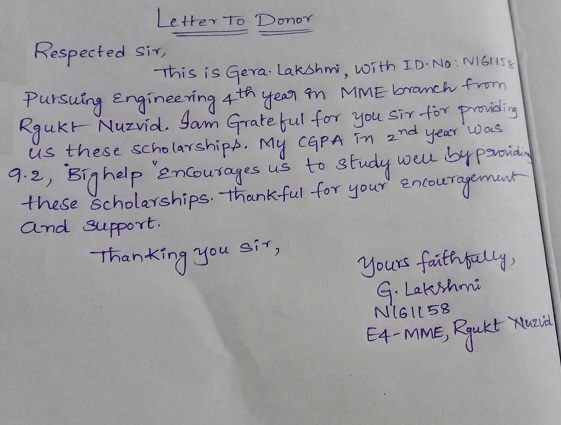 Letter To Donor
Respected Sir,
This is Gera. Lakshmi, with ID.No: N161158
Pursuing Engineering 4th year in MME branch from
Rgukt Nuzvid. Iam Grateful for you sir for providing
us these scholarships. My CGPA in 2nd year was
9.2, "Bighelp" Encourages us to study well by providing
these scholarships. Thankful for your encouragement
and support.
Thanking you sir,
Yours faithfully,
G. Lakshmi
N161158
E4-MME, Rgukt Nuzvid